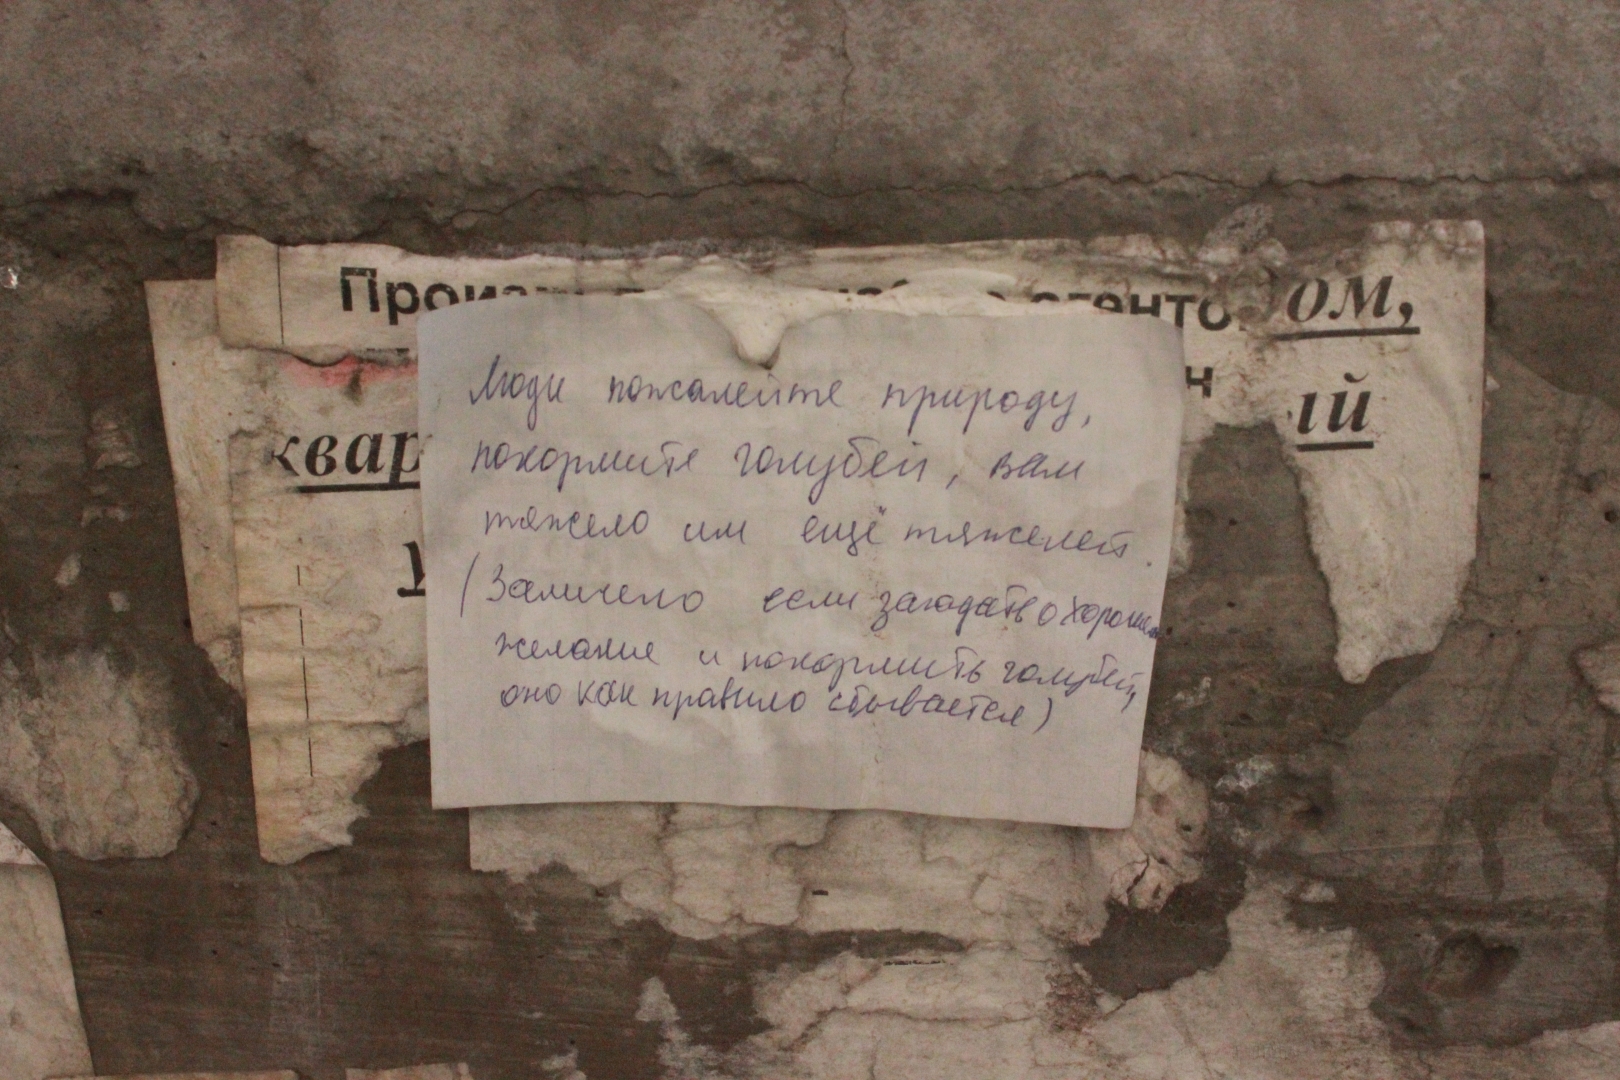 Произв
агенто
ом,
н
ый
квар
у
Люди пожалейте природу,
покормите голубей, вам
тяжело им ещё тяжелей.
(Замечено если загадать о хорошем
желание и покормить голубей,
оно как правило сбывается)